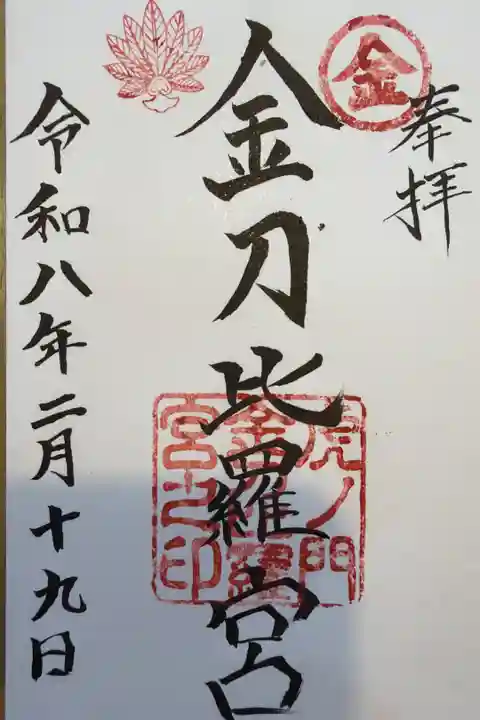 奉拝
金
金刀比羅宮
虎ノ門
金刀比羅
宮之印
令和八年二月十九日